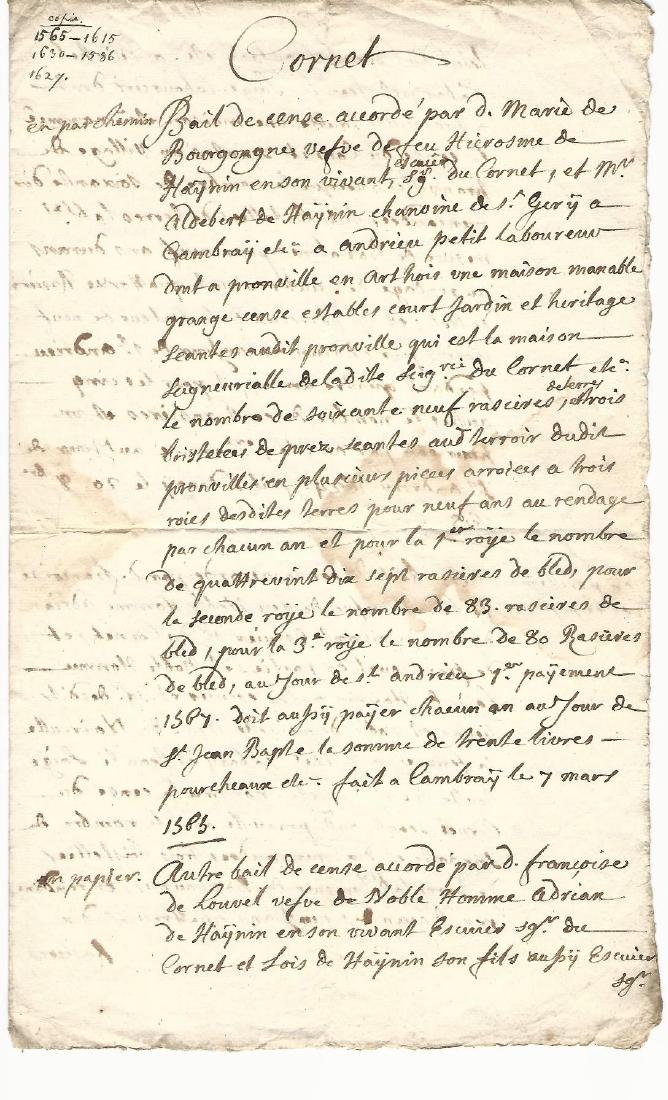 copie.
1565 – 1615
1630 – 1586
1627.
Cornet
en parchemin
Bail de cense accordé par d. Marie de
Bourgongne, vefve de feu Hierosme de
Haÿnin en son vivant, escuier sgr. du Cornet, et Mr.
Aldebert de Haÿnin chanoine de St. Gerÿ a
Cambraÿ etc. a andrieu petit laboureur
dmt a pronville en Arthois une maison manable
grange cense estables court Jardin et heritage
seantes audit pronville qui est la maison
seigneuriable de ladite seigrie du Cornet etc.
le nombre de soixante neuf rasieres de terres, et trois
de prez seantes au terroir dudit
pronville en plusieurs pieces arroiees a trois
roies desdites terres pour neuf ans au rendage
par chacun an et pour la 1ere roÿe le nombre
de quattrevint dix sept rasieres de bled, pour
la seconde roÿe le nombre de 83. rasieres de
bled, pour la 3.e roÿe le nombre de 80 Rasieres
de bled, au Jour de St andrieu 1er payement
1567. doit aussy païer chacun an au Jour de
St. Jean Bapte la somme de trente livres
pourcheaux etc. fait a Cambraÿ le 7 mars
1565.
en papier.
Autre bail de cense accordé par d. françoise
de Louvel vefve de Noble Homme Adrian
de Haÿnin en son vivant Escuier sgr. du
Cornet et Lois de Haÿnin son fils aussy Escuier
sgr.